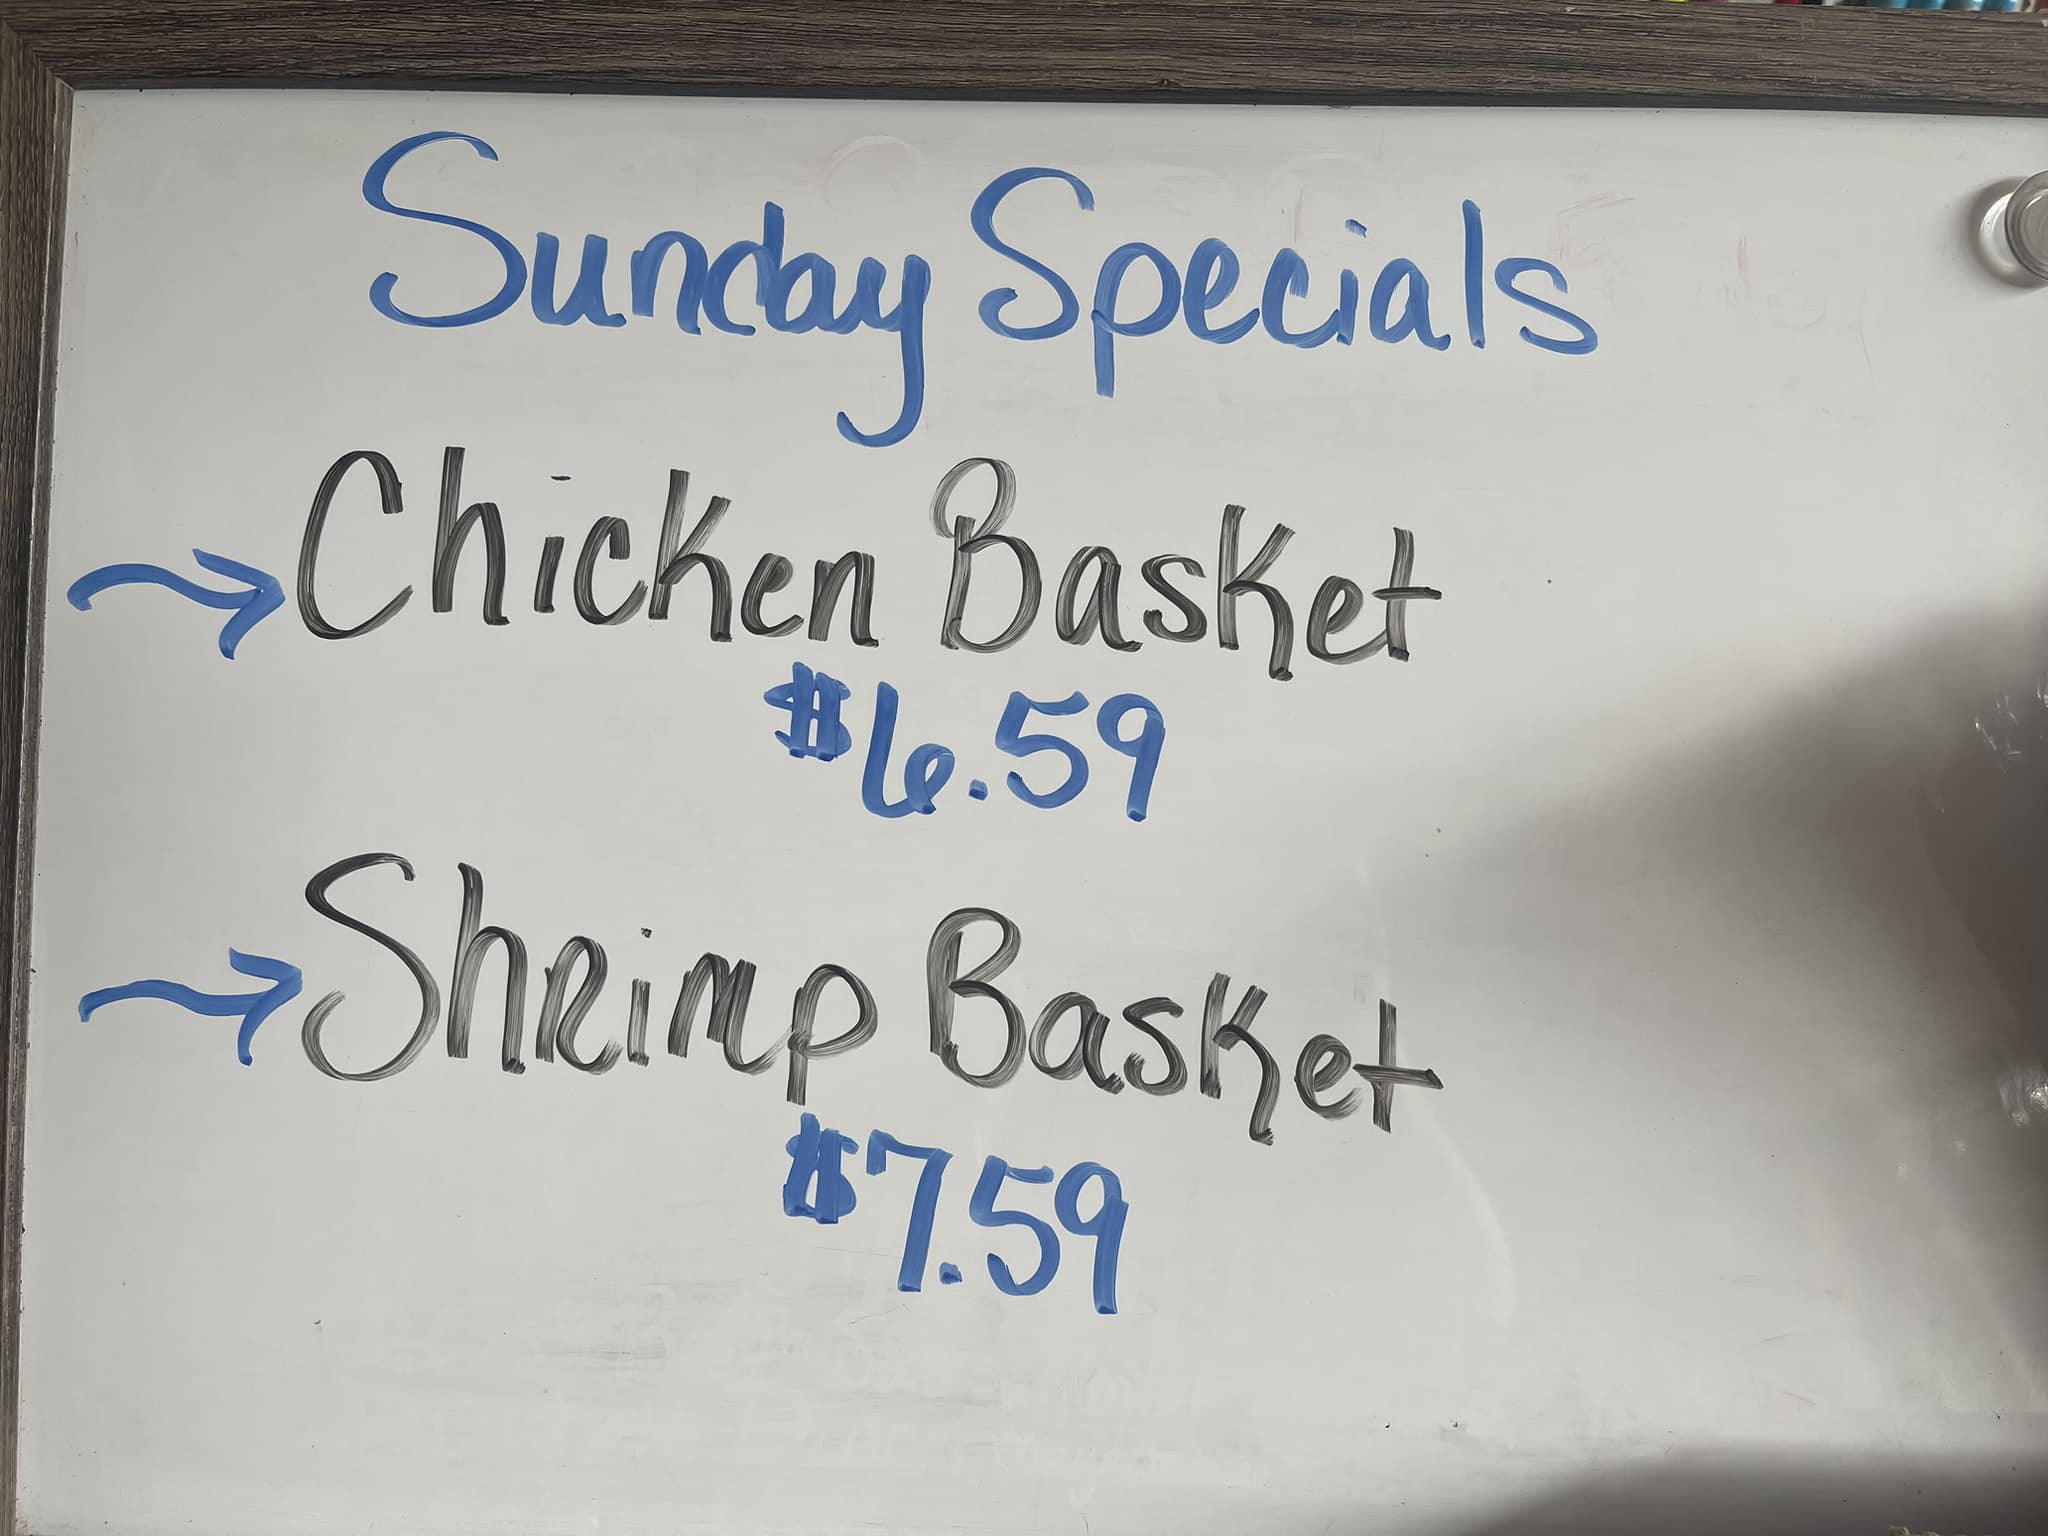 Sunday Specials
Chicken Basket
$6.59
Shrimp Basket
$7.59